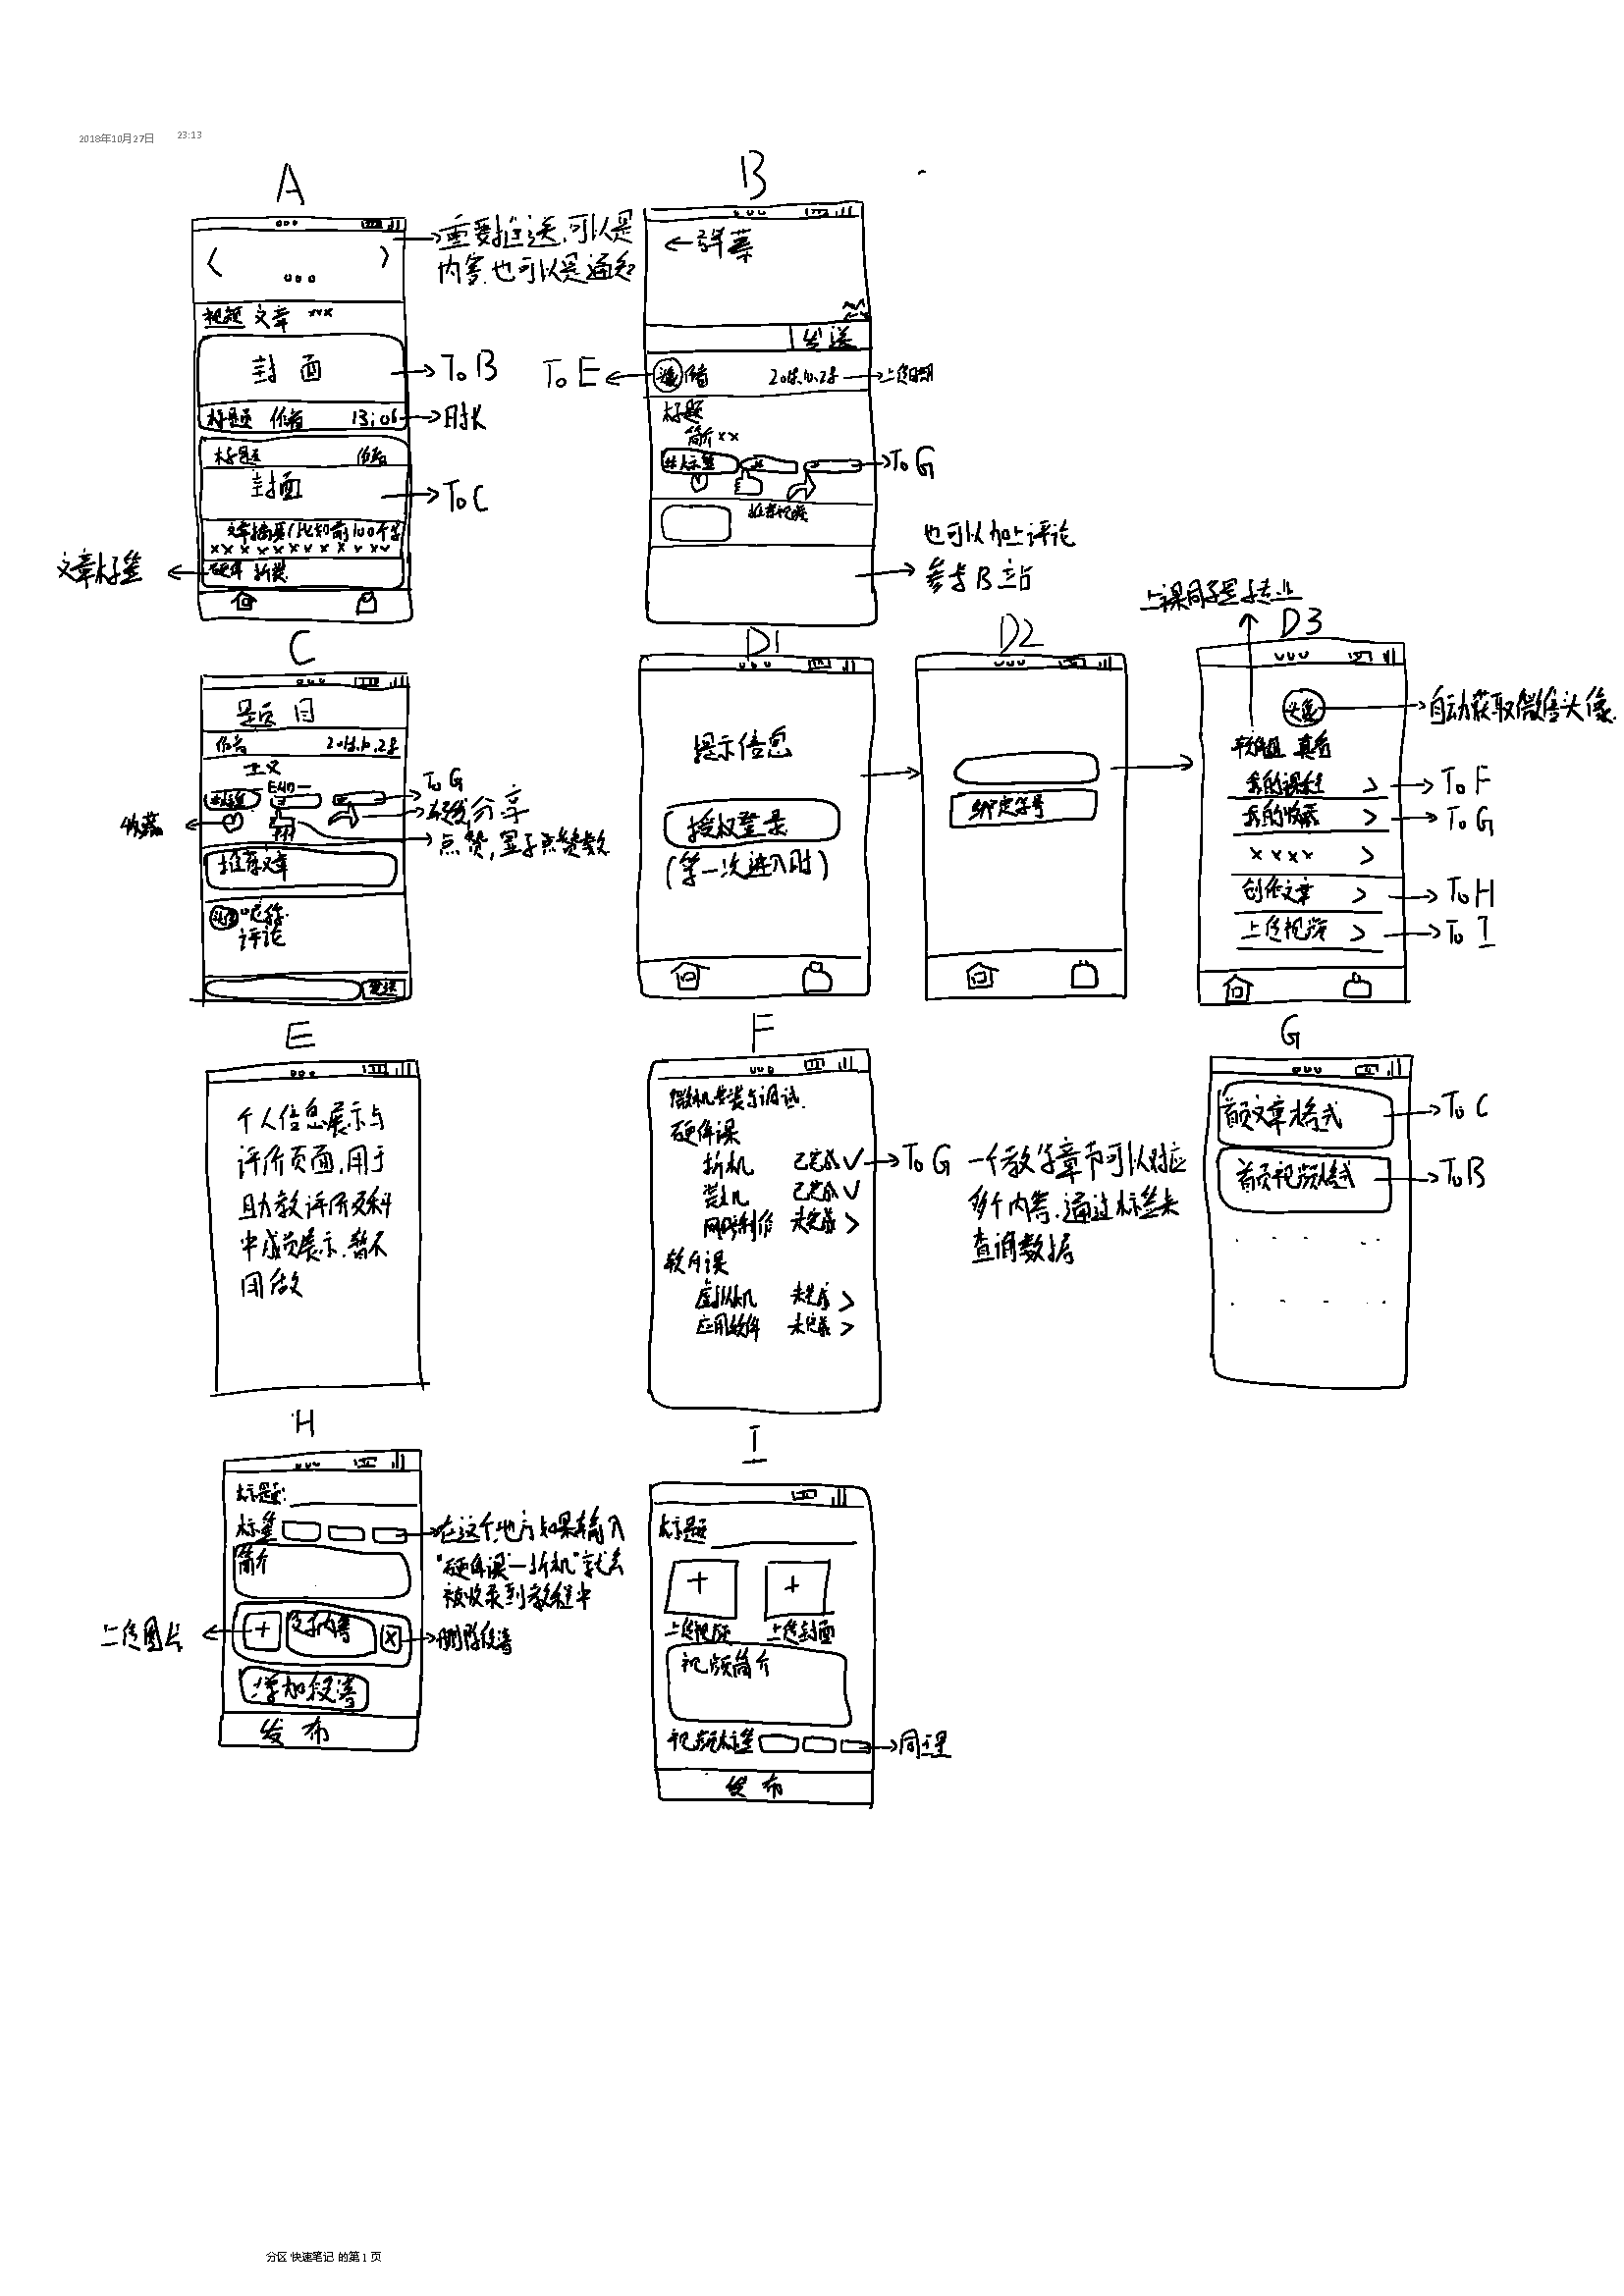 2018年10月27日 23:13
A
重要推送,可以是
内容.也可以是通知
视频 文章 xxx
封面
To B
标题 作者 13:06
时长
标题 作者
封面
To C
文章摘要(比如前100个字
xxxxxxxxxxx
文章标签
硬件 拆装
B
←弹幕
发送
To E
作者 2018.10.28
上传日期
标题
简介xx
#标签
To G
推荐视频
也可以加上评论
参考B站
C
作者 2018.10.28
正文
END
To G
收藏
分享
点赞,显示点赞数
推荐文章
头像 昵称
评论
发送
D1
提示信息
授权登录
(第一次进入时)
D2
绑定学号
D3
头像
自动获取微信头像
我的课程 >
To F
我的收藏 >
To G
xxxx >
创作文章 >
To H
上传视频 >
To I
E
个人信息展示与
评价页面,用于
助教评价及科
中成员展示.暂不
F
微机安装与调试
硬件课
拆机 已完成 ✓
To G
装机 已完成 ✓
网线制作 未完成 >
软件课
虚拟机 未完成 >
应用软件 未完成 >
一个教学章节可以对应
多个内容.通过标签来
查询数据
G
首页文章格式
To C
首页视频格式
To B
H
标题:
标签
在这个地方如果输入
"硬件课—拆机"就会
被收录到教程中
简介
上传图片
+ 文字内容 x
删除段落
增加段落
发布
I
标题
+ +
上传视频 上传封面
视频简介
视频标签
同理
发布
分区 快速笔记 的第 1 页